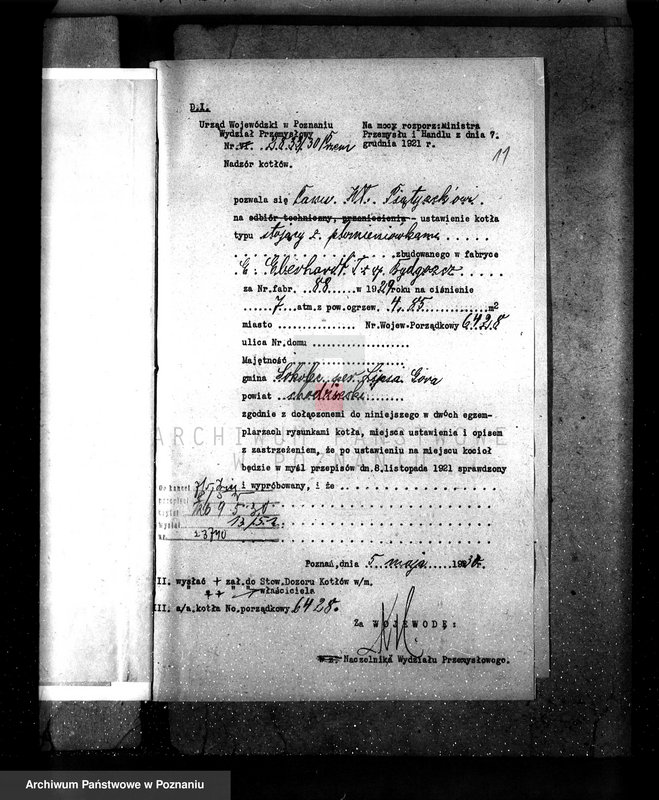 D.I.
Urząd Wojewódzki w Poznaniu
Wydział Przemysłowy
Nr.
Nadzór kotłów.
Na mocy rozporz:Ministra
Przemysłu i Handlu z dnia 7.
grudnia 1921 r.
11
pozwala się Panu W.
na odbiór techniczny, przeniesienia - ustawienie kotła
typu stojący z płomieniówkami
zbudowanego w fabryce
C. Eberhardt Bydgoszcz
za Nr.fabr. 88 w 1929 roku na ciśnienie
7 atm.z pow.ogrzew. 4.85 m2
miasto Nr.Wojew.Porządkowy 6428
ulica Nr.domu
Majętność
gmina Lipia Góra
powiat chodzieski
zgodnie z dołączonemi do niniejszego w dwóch egzem-
plarzach rysunkami kotła, miejsca ustawienia i opisem
z zastrzeżeniem, że po ustawieniu na miejscu kocioł
będzie w myśl przepisów dn.8.listopada 1921 sprawdzony
i wypróbowany, i że
ARCHIWUM PAŃSTWOWE
W POZNANIU
23740
Poznań,dnia 5 maja 1930.
II. wysłać + zał.do Stow.Dozoru Kotłów w/m.
właściciela
III. a/a.kotła No.porządkowy 6428.
Za WOJEWODĘ:
w z. Naczelnika Wydziału Przemysłowego.
Archiwum Państwowe w Poznaniu